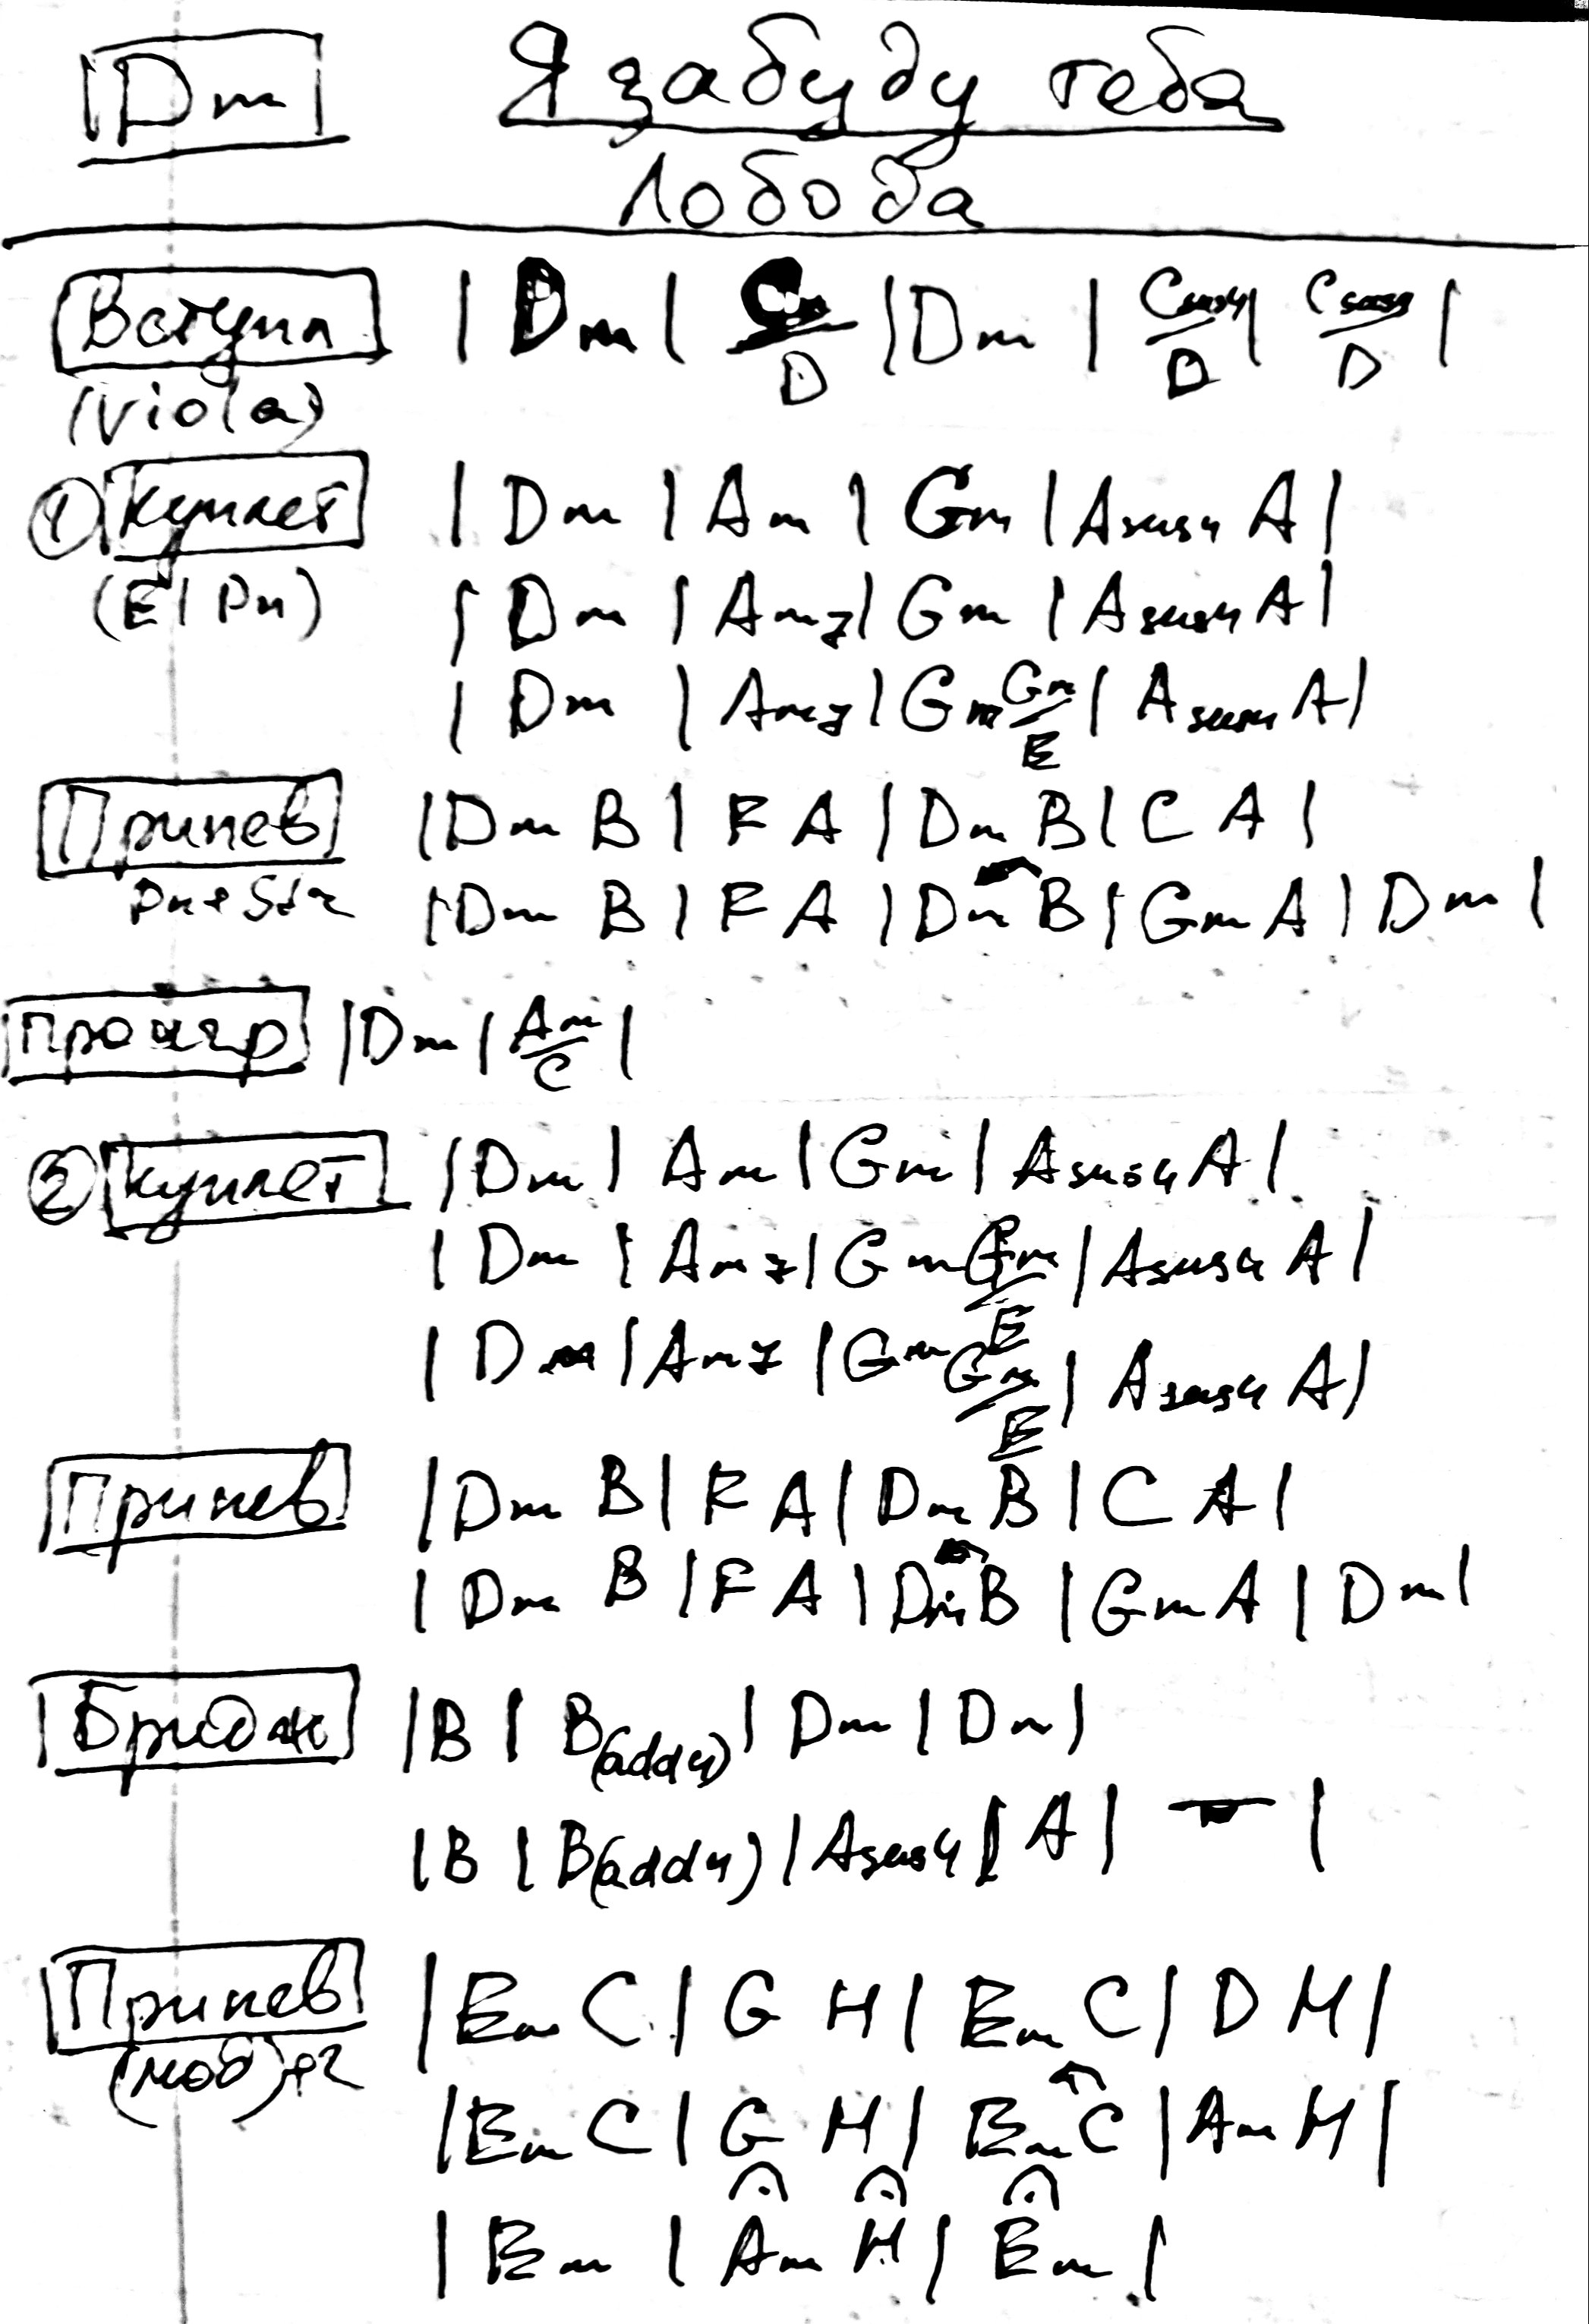 Dm Я забуду тебя
Лобода
Вступл | Dm | C/D | Dm | Csus4/D | Csus4/D |
(Viola)
① Куплет | Dm | Am | Gm | Asus4 A |
(El Pn) | Dm | Am7 | Gm | Asus4 A |
| Dm | Am7 | Gm Gm/E | Asus4 A |
Припев | Dm B | F A | Dm B | C A |
Pn+Str | Dm B | F A | Dm B | Gm A | Dm |
Проигр | Dm | Am/C |
② Куплет | Dm | Am | Gm | Asus4 A |
| Dm | Am7 | Gm Gm/E | Asus4 A |
| Dm | Am7 | Gm Gm/E | Asus4 A |
Припев | Dm B | F A | Dm B | C A |
| Dm B | F A | Dm B | Gm A | Dm |
Бридж | B | B(add4) | Dm | Dm |
| B | B(add4) | Asus4 | A | – |
Припев | Em C | G H | Em C | D H |
(мод)+2 | Em C | G H | Em C | Am H |
| Em | Am H | Em |